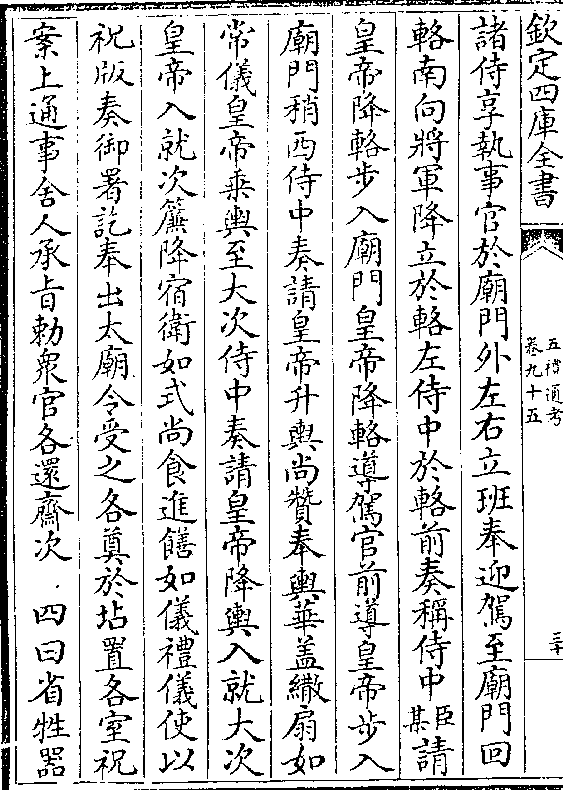 欽定四庫全書
五禮通考
卷九十五
三十
諸侍享執事官於廟門外左右立班奉迎駕至廟門回
輅南向將軍降立於輅左侍中於輅前奏稱侍中臣某請
皇帝降輅步入廟門皇帝降輅導駕官前導皇帝步入
廟門稍西侍中奏請皇帝升輿尚輦奉輿華盖繖扇如
常儀皇帝乘輿至大次侍中奏請皇帝降輿入就大次
皇帝入就次簾降宿衛如式尚食進饍如儀禮儀使以
祝版奏御署訖奉出太廟令受之各奠於坫置各室祝
案上通事舍人承旨勅衆官各還齋次 四曰省牲器